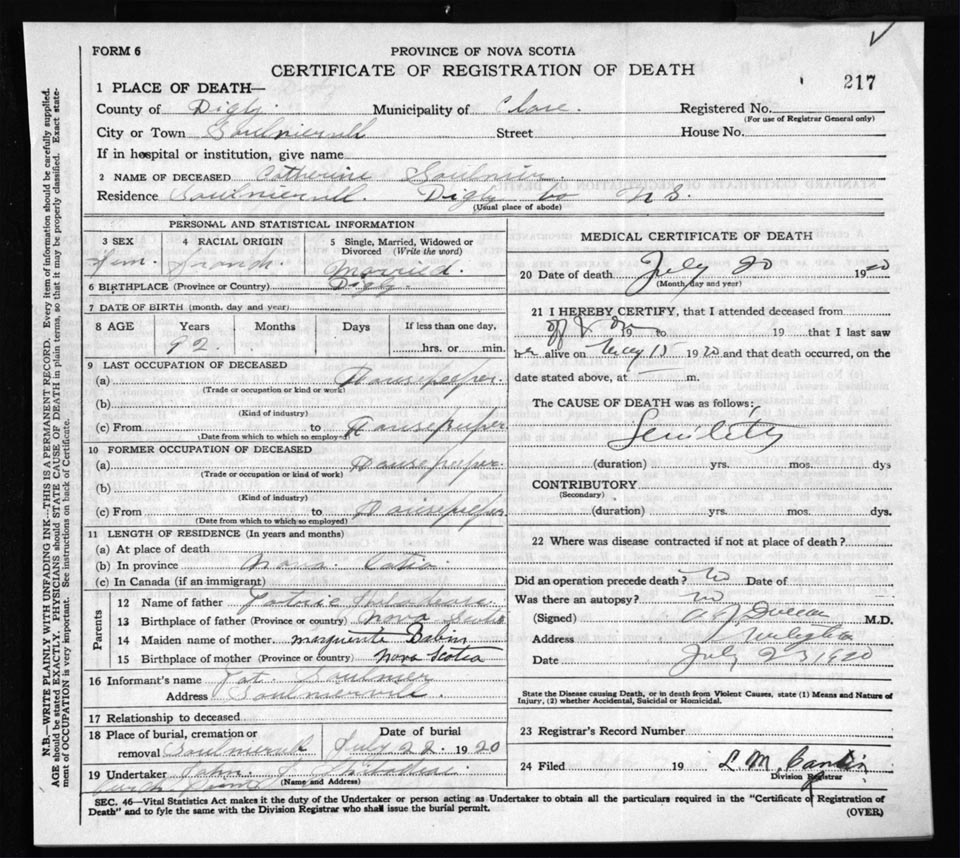 FORM 6
PROVINCE OF NOVA SCOTIA
CERTIFICATE OF REGISTRATION OF DEATH
217
1 PLACE OF DEATH—
County of Digby Municipality of Clare. Registered No.
(For use of Registrar General only)
City or Town Saulnierville Street House No.
If in hospital or institution, give name
2 NAME OF DECEASED Catherine Saulnier.
Residence Saulnierville. Digby Co N.S.
(Usual place of abode)
PERSONAL AND STATISTICAL INFORMATION
3 SEX 4 RACIAL ORIGIN 5 Single, Married, Widowed or Divorced (Write the word)
Fem. French. Married.
6 BIRTHPLACE (Province or Country) Digby.
7 DATE OF BIRTH (month, day and year)
8 AGE Years Months Days If less than one day,
92. hrs. or min.
9 LAST OCCUPATION OF DECEASED
(a) Housekeeper.
(Trade or occupation or kind or work)
(b)
(Kind of industry)
(c) From to Housekeeper
(Date from which to which so employed)
10 FORMER OCCUPATION OF DECEASED
(a) Housekeeper.
(Trade or occupation or kind of work)
(b)
(Kind of industry)
(c) From to Housekeeper
(Date from which to which so employed)
11 LENGTH OF RESIDENCE (In years and months)
(a) At place of death
(b) In province Nova Cotia.
(c) In Canada (if an immigrant)
Parents
12 Name of father
13 Birthplace of father (Province or country) Nova Scotia
14 Maiden name of mother Marguerite
15 Birthplace of mother (Province or country) Nova Scotia
16 Informant's name Pat. Saulnier
Address Saulnierville.
17 Relationship to deceased
18 Place of burial, cremation or removal Saulnierville
Date of burial July 22 1920
19 Undertaker John
(Name and Address)
MEDICAL CERTIFICATE OF DEATH
20 Date of death July 20 1920
(Month, day and year)
21 I HEREBY CERTIFY, that I attended deceased from
19 to 19 that I last saw
her alive on May 15 1920 and that death occurred, on the
date stated above, at m.
The CAUSE OF DEATH was as follows:
Senility
(duration) yrs. mos. dys
CONTRIBUTORY
(Secondary)
(duration) yrs. mos. dys.
22 Where was disease contracted if not at place of death?
Did an operation precede death? No Date of
Was there an autopsy? no
(Signed) M.D.
Address
Date July 23 1920
State the Disease causing Death, or in death from Violent Causes, state (1) Means and Nature of
Injury, (2) whether Accidental, Suicidal or Homicidal.
23 Registrar's Record Number
24 Filed 19 L. M.
Division Registrar
SEC. 46—Vital Statistics Act makes it the duty of the Undertaker or person acting as Undertaker to obtain all the particulars required in the "Certificate of Registration of
Death" and to fyle the same with the Division Registrar who shall issue the burial permit.
(OVER)
N.B.—WRITE PLAINLY WITH UNFADING INK—THIS IS A PERMANENT RECORD. Every item of information should be carefully supplied.
AGE should be stated EXACTLY. PHYSICIANS should STATE CAUSE OF DEATH in plain terms, so that it may be properly classified. Exact state-
ment of OCCUPATION is very important. See instructions on back of Certificate.